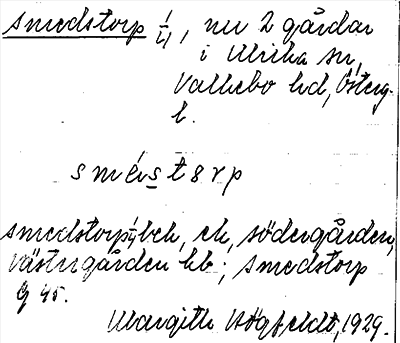 Smedstorp 1/4, nu 2 gårdar
i Ulrika sn,
Vallebo hd, Österg.
l.
s m é s t ө r p
Smedstorp 1/4 beb, ek, södergården,
västergården kb; Smedstorp
G 45.
Margith Högfeldt, 1929.